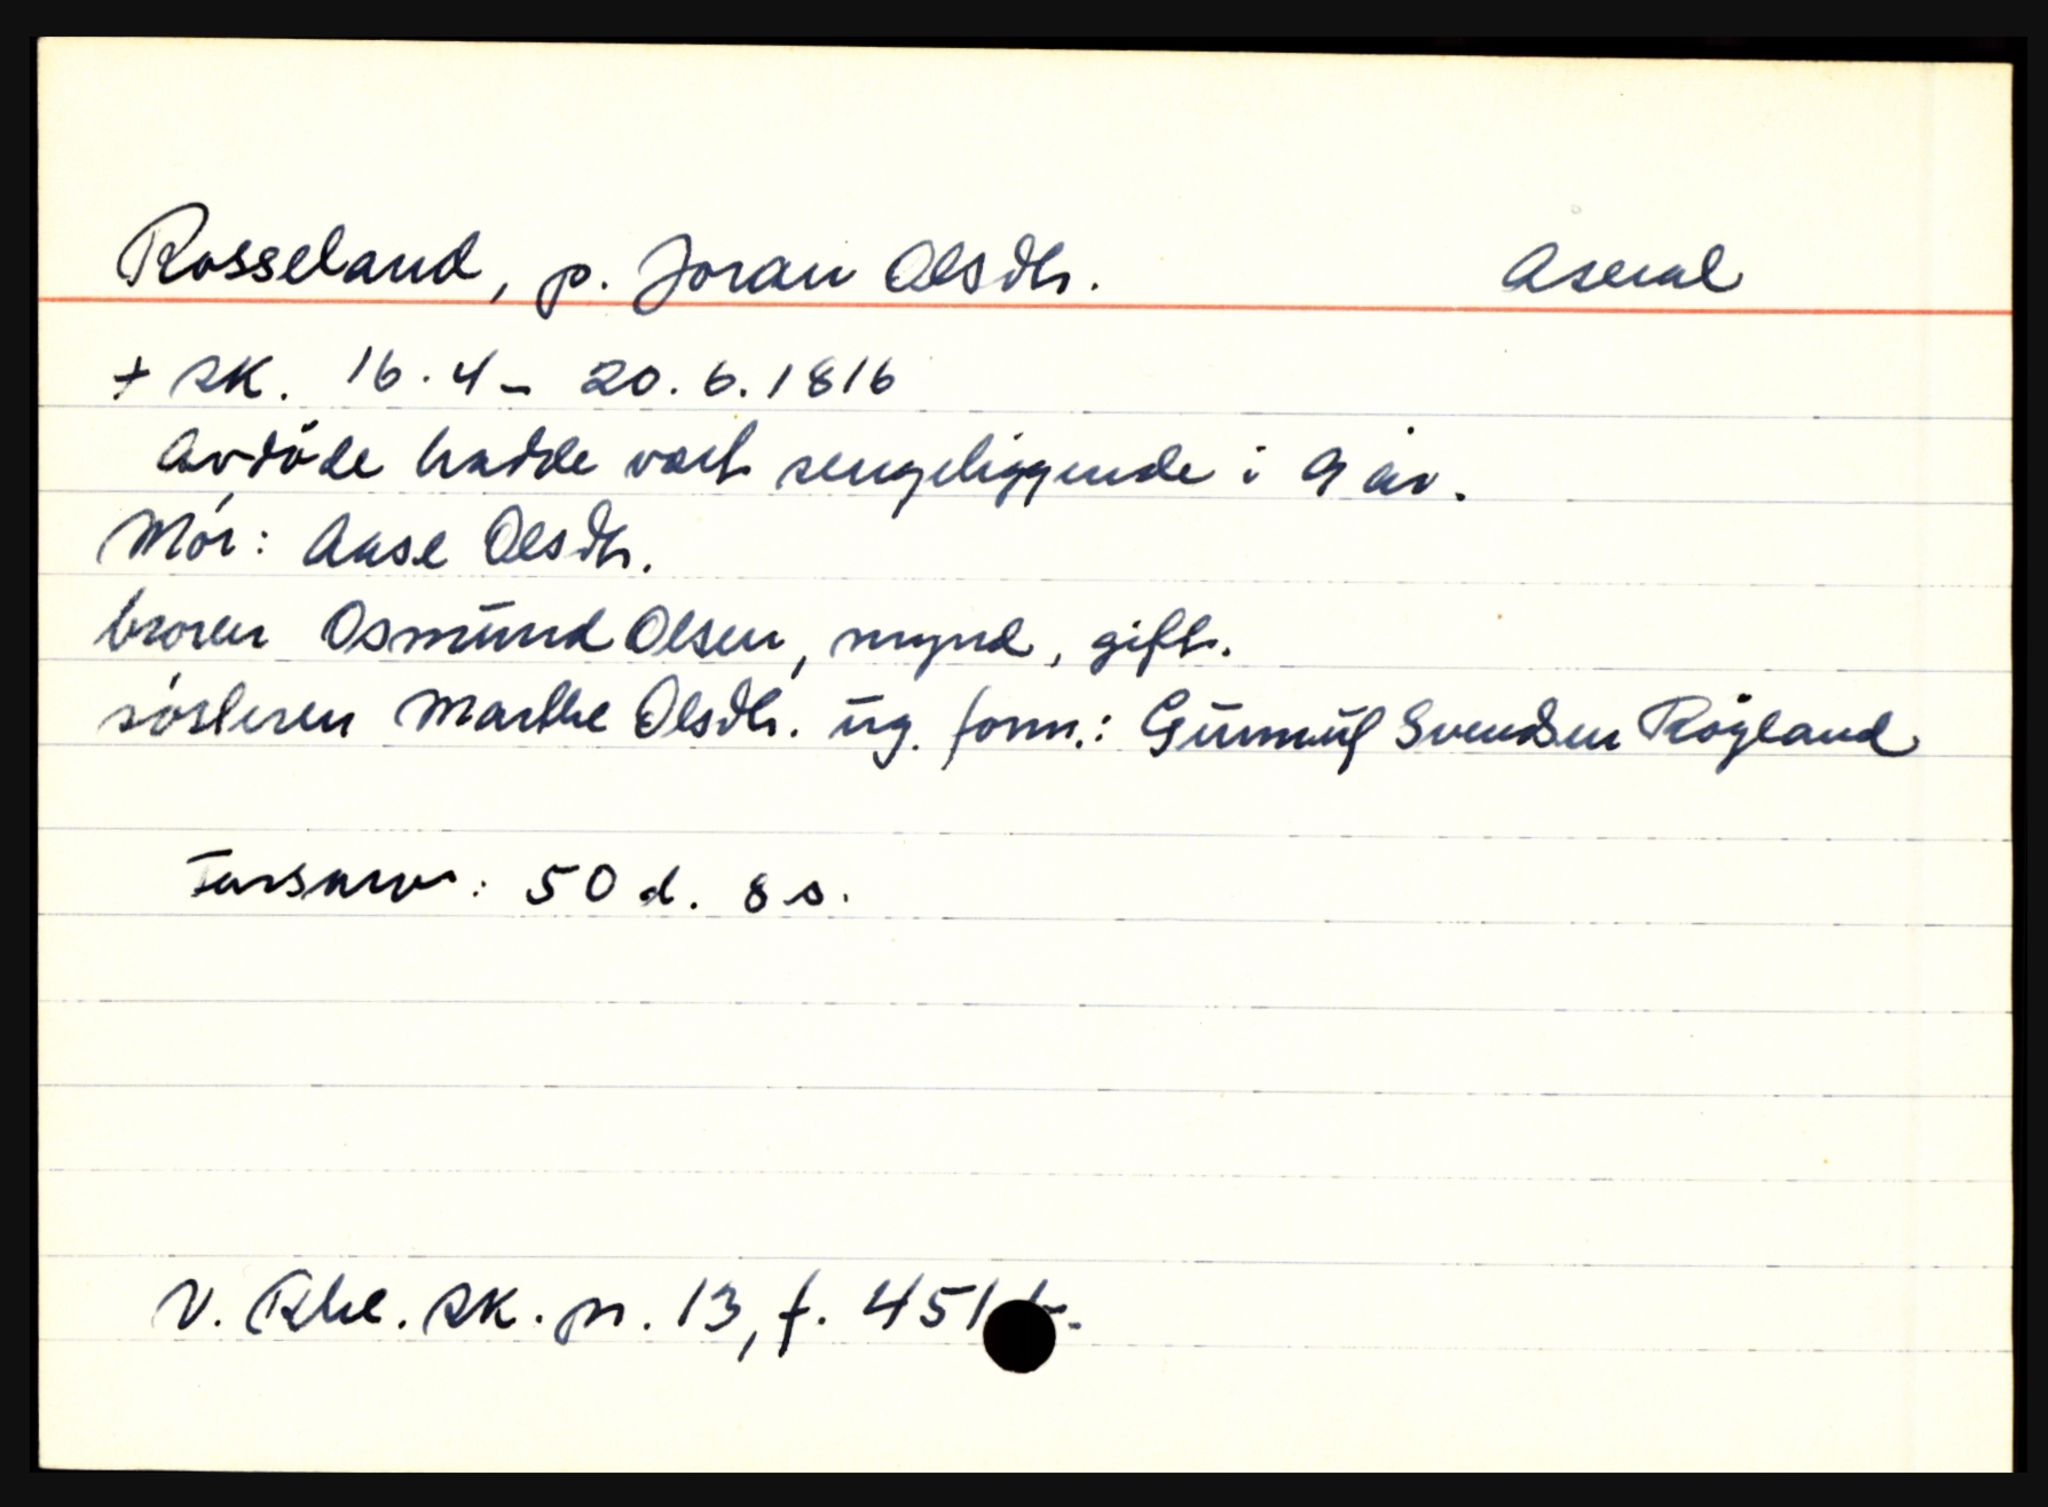 Rosseland, p. Joran Olsdtr. Aseral
+ sk. 16.4 - 20.6.1816
Avdöde hadde vært sengeliggende i 9 år.
Mor: Aase Olsdtr.
broren Osmund Olsen, mynd, gift.
sösteren Marthe Olsdtr. ug. form.: Gunnuf Svendsen Rögland
Farsarv: 50 d. 8 s.
V. Rbl. sk. pr. 13, f. 451 b.